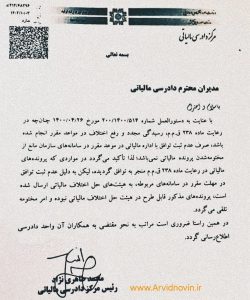 مرکز دادرسی مالیاتی
بسمه تعالی
مدیران محترم دادرسی مالیاتی
با سلام و احترام
با عنایت به دستورالعمل شماره ۲۰۰/۱۴۰۰/۵۱۴ مورخ ۱۴۰۰/۰۴/۲۶ چنانچه در
رعایت ماده ۲۳۸ ق.م.م، رسیدگی مجدد و رفع اختلاف در مواعد مقرر انجام شده
باشد، صرف عدم ثبت توافق با اداره مالیاتی در موعد مقرر در سامانه‌های سازمان مانع از
مختومه‌شدن پرونده مالیاتی نمی‌باشد؛ لذا تأکید می‌گردد در مواردی که پرونده‌های
در رعایت ماده ۲۳۸ ق.م.م منجر به توافق گردیده، لیکن به دلیل عدم ثبت توافق
در مهلت مقرر در سامانه‌های مربوطه، به هیئت‌های حل اختلاف مالیاتی ارسال شده
است، پرونده‌های مذکور قابل طرح در هیئت‌های حل اختلاف مالیاتی نبوده و امر مختومه
تلقی می‌گردد.
در همین راستا ضروری است مراتب به نحو مقتضی به همکاران آن واحد دادرسی
اطلاع‌رسانی گردد.
محمد طاهری نژاد
رئیس مرکز دادرسی مالیاتی
www.Arvidnovin.ir